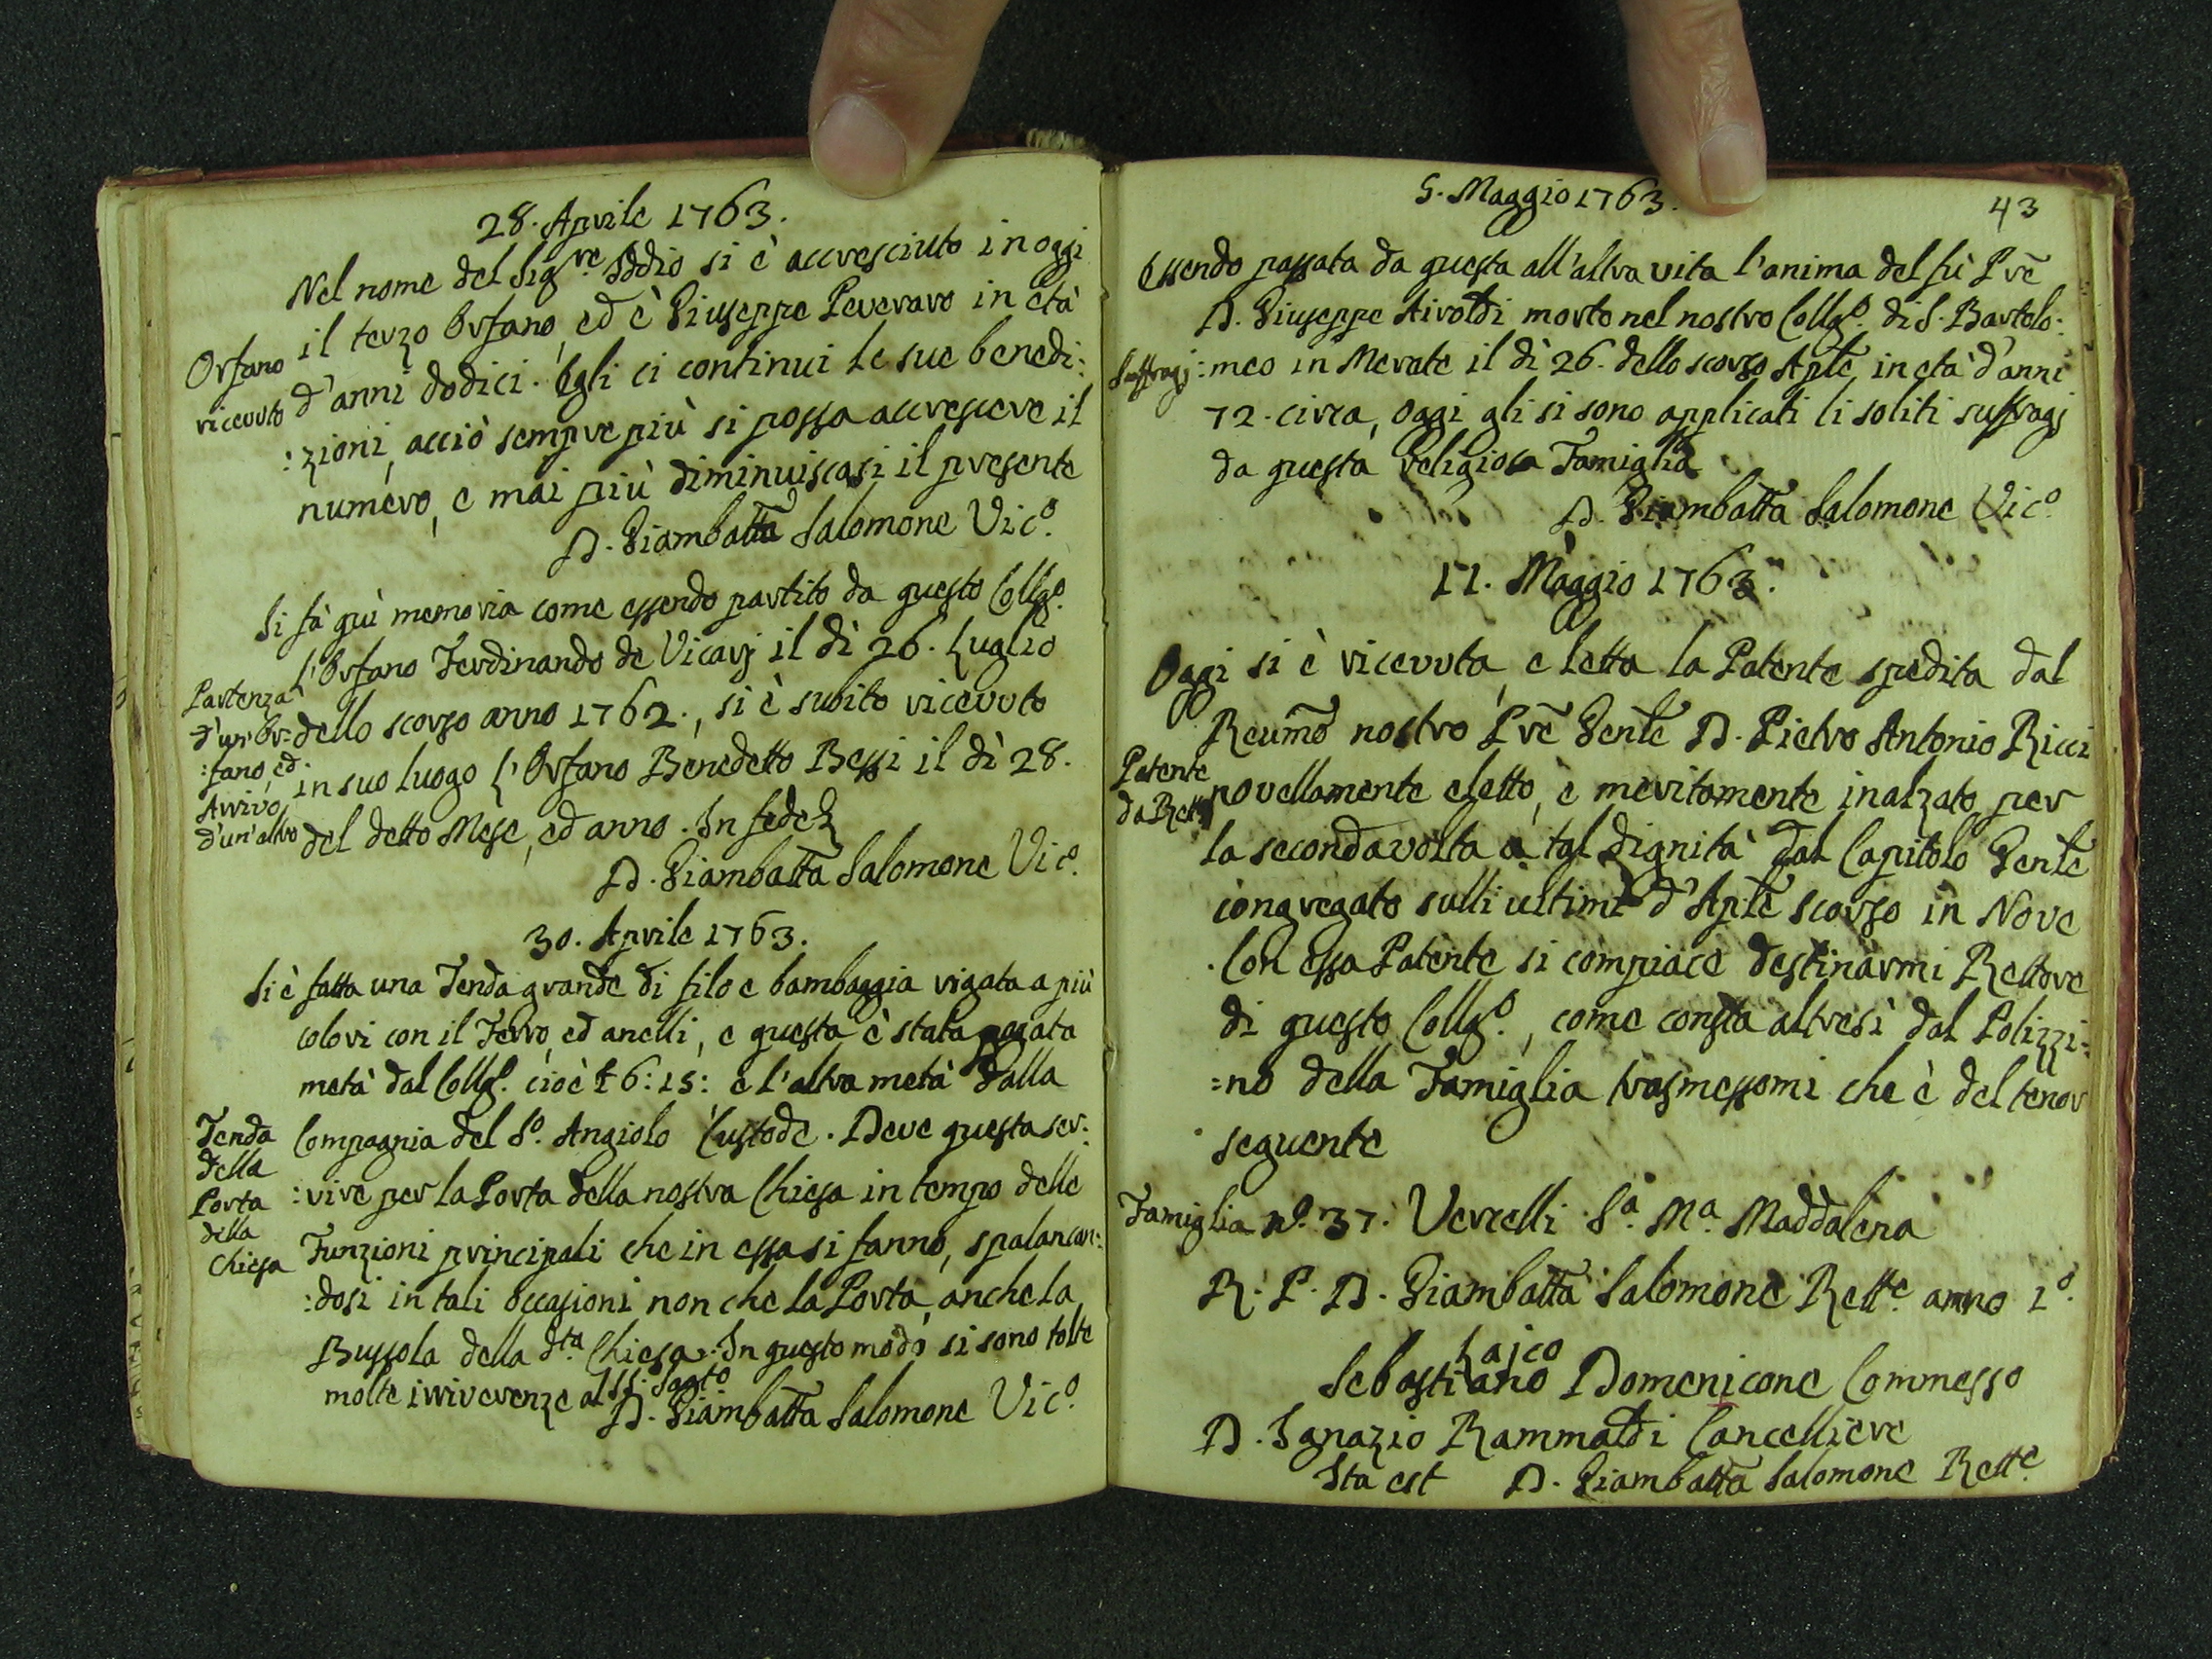 28. Aprile 1763.
Nel nome del Sig.re Iddio si è accresciuto in oggi
il terzo Orfano, ed è Giuseppe Peveraro in età
Orfano
ricevuto
d'anni dodici. Egli ci continui le sue benedi:
:zioni, acciò sempre più si possa accrescere il
numero, e mai più diminuiscasi il presente
D. Giambatta Salomone Vic.o
Si fà quì memoria come essendo partito da questo Collg.o
l'Orfano Ferdinando de Vicarj il dì 26. Luglio
Partenza
d'un Or:
:fano, ed
Arrivo
d'un'altro
dello scorso anno 1762., si è subito ricevuto
in suo luogo l'Orfano Benedetto Bessi il dì 28.
del detto Mese, ed anno. In fede
D. Giambatta Salomone Vic.o
30. Aprile 1763.
Si è fatta una Tenda grande di filo e bambaggia rigata a più
colori con il Ferro, ed anelli, e questa è stata pagata
metà dal Collg.o cioè ł 6: 15: e l'altra metà dalla
Tenda
della
Porta
della
Chiesa
Compagnia del S.o Angiolo Custode. Deve questa ser:
:vire per la Porta della nostra Chiesa in tempo delle
Funzioni principali che in essa si fanno, spalancan:
:dosi in tali occasioni non che la Porta, anche la
Bussola della d.ta Chiesa. In questo modo si sono tolte
molte irriverenze al SS. Sagr.to
D. Giambatta Salomone Vic.o
5. Maggio 1763.
43
Essendo passata da questa all'altra vita l'anima del fù Prē
D. Giuseppe Airoldi morto nel nostro Collg.o di S. Bartolo:
Suffragj
:meo in Merate il dì 26. dello scorso Aplē in età d'anni
72. circa, oggi gli si sono applicati li soliti suffragj
da questa Religiosa Famiglia
D. Giambatta Salomone Vic.o
11. Maggio 1763.
Oggi si è ricevuta, e letta la Patente spedita dal
Reumo nostro Prē Genlē D. Pietro Antonio Ricci
Patente
da Rett.e
novellamente eletto, è meritamente inalzato per
la seconda volta a tal dignità dal Capitolo Genlē
congregato sulli ultimi d'Aplē scorso in Nove
. Con essa Patente si compiace destinarmi Rettore
di questo Collg.o, come consta altresì dal Polizzi:
:no della Famiglia trasmessomi che è del tenor
seguente
Famiglia N.o 37. Vercelli S.a M.a Maddalena
R. P. D. Giambatta Salomone Rett.e anno 1.o
Laico
Sebastiano Domenicone Commesso
D. Ignazio Rammaldi Cancelliere
Ita est D. Giambatta Salomone Rett.e